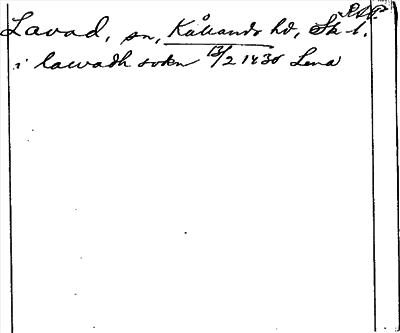 Lavad, sn, Kållands hd, Sk l.
i lawadh sokn 13/2 1430 Lena